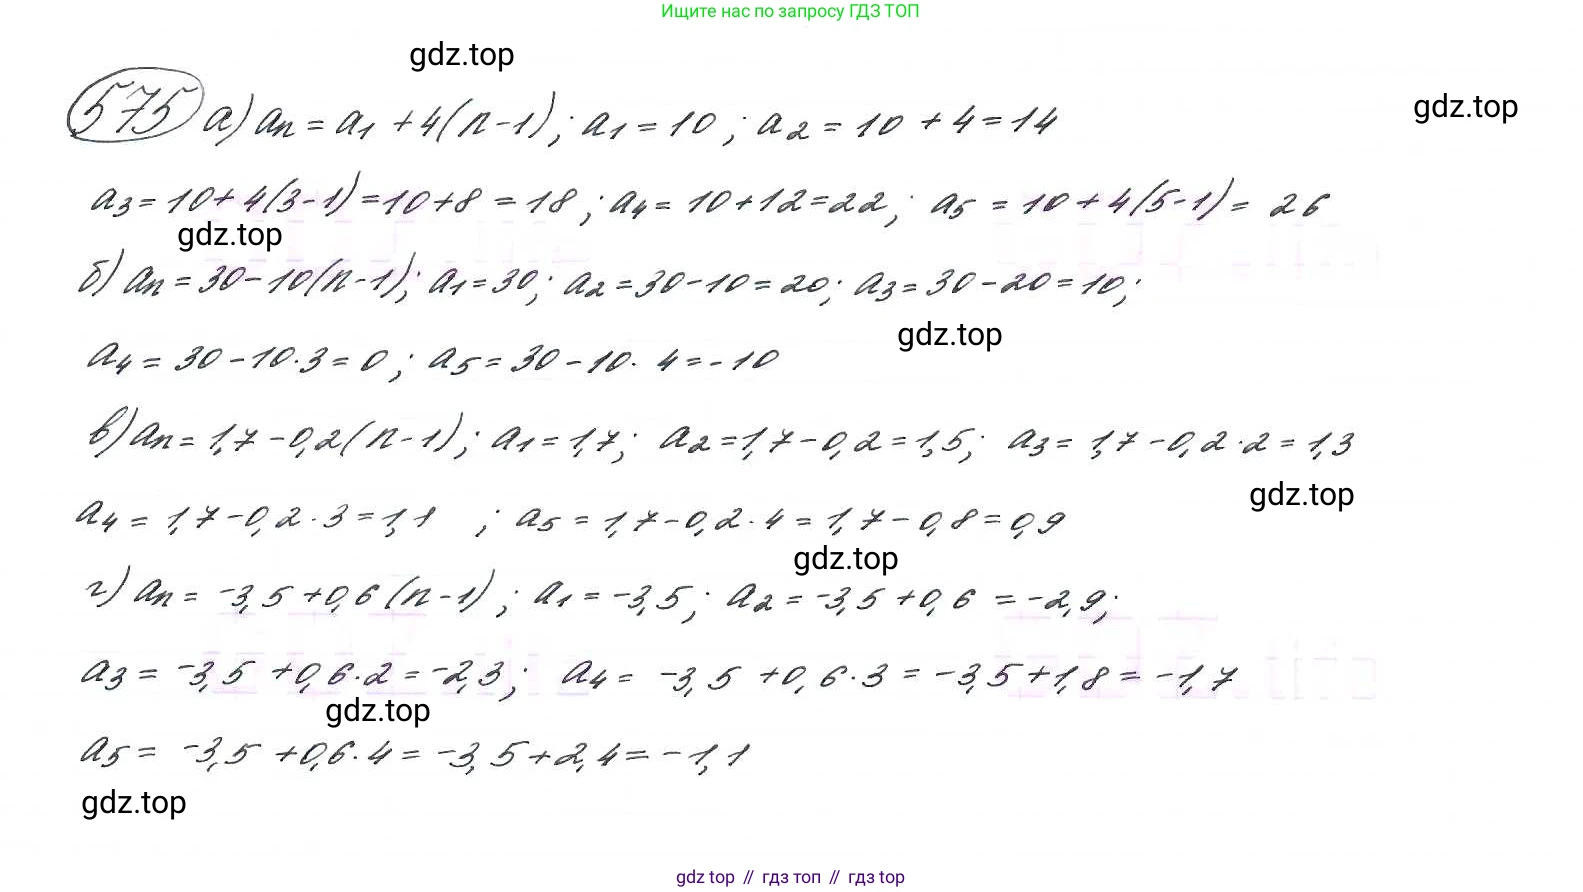 Ищите нас по запросу ГДЗ ТОП
gdz.top
gdz.top
575 а) an = a1 + 4(n-1); a1 = 10; a2 = 10 + 4 = 14
a3 = 10 + 4(3-1) = 10 + 8 = 18; a4 = 10 + 12 = 22; a5 = 10 + 4(5-1) = 26
gdz.top
б) an = 30 - 10(n-1); a1 = 30; a2 = 30 - 10 = 20; a3 = 30 - 20 = 10;
gdz.top
a4 = 30 - 10·3 = 0; a5 = 30 - 10·4 = -10
в) an = 1,7 - 0,2(n-1); a1 = 1,7; a2 = 1,7 - 0,2 = 1,5; a3 = 1,7 - 0,2·2 = 1,3
gdz.top
a4 = 1,7 - 0,2·3 = 1,1 ; a5 = 1,7 - 0,2·4 = 1,7 - 0,8 = 0,9
gdz.top
г) an = -3,5 + 0,6(n-1); a1 = -3,5; a2 = -3,5 + 0,6 = -2,9;
a3 = -3,5 + 0,6·2 = -2,3; a4 = -3,5 + 0,6·3 = -3,5 + 1,8 = -1,7
gdz.top
a5 = -3,5 + 0,6·4 = -3,5 + 2,4 = -1,1
gdz.top
gdz top // гдз топ // gdz top